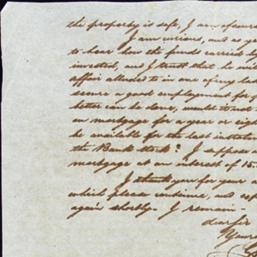 the property is safe, I am
I am curious, and as
to hear how the funds carried by
invested, and I trust that he will
affair alluded to in one of my
secure a good employment for
better can be done, would it not
on mortgage for a year or
be available for the last
the Bank Stock? I suppose
mortgage at an interest of 15
I thank you for your
which please continue, and
again shortly. I remain
dear Sir
Yours